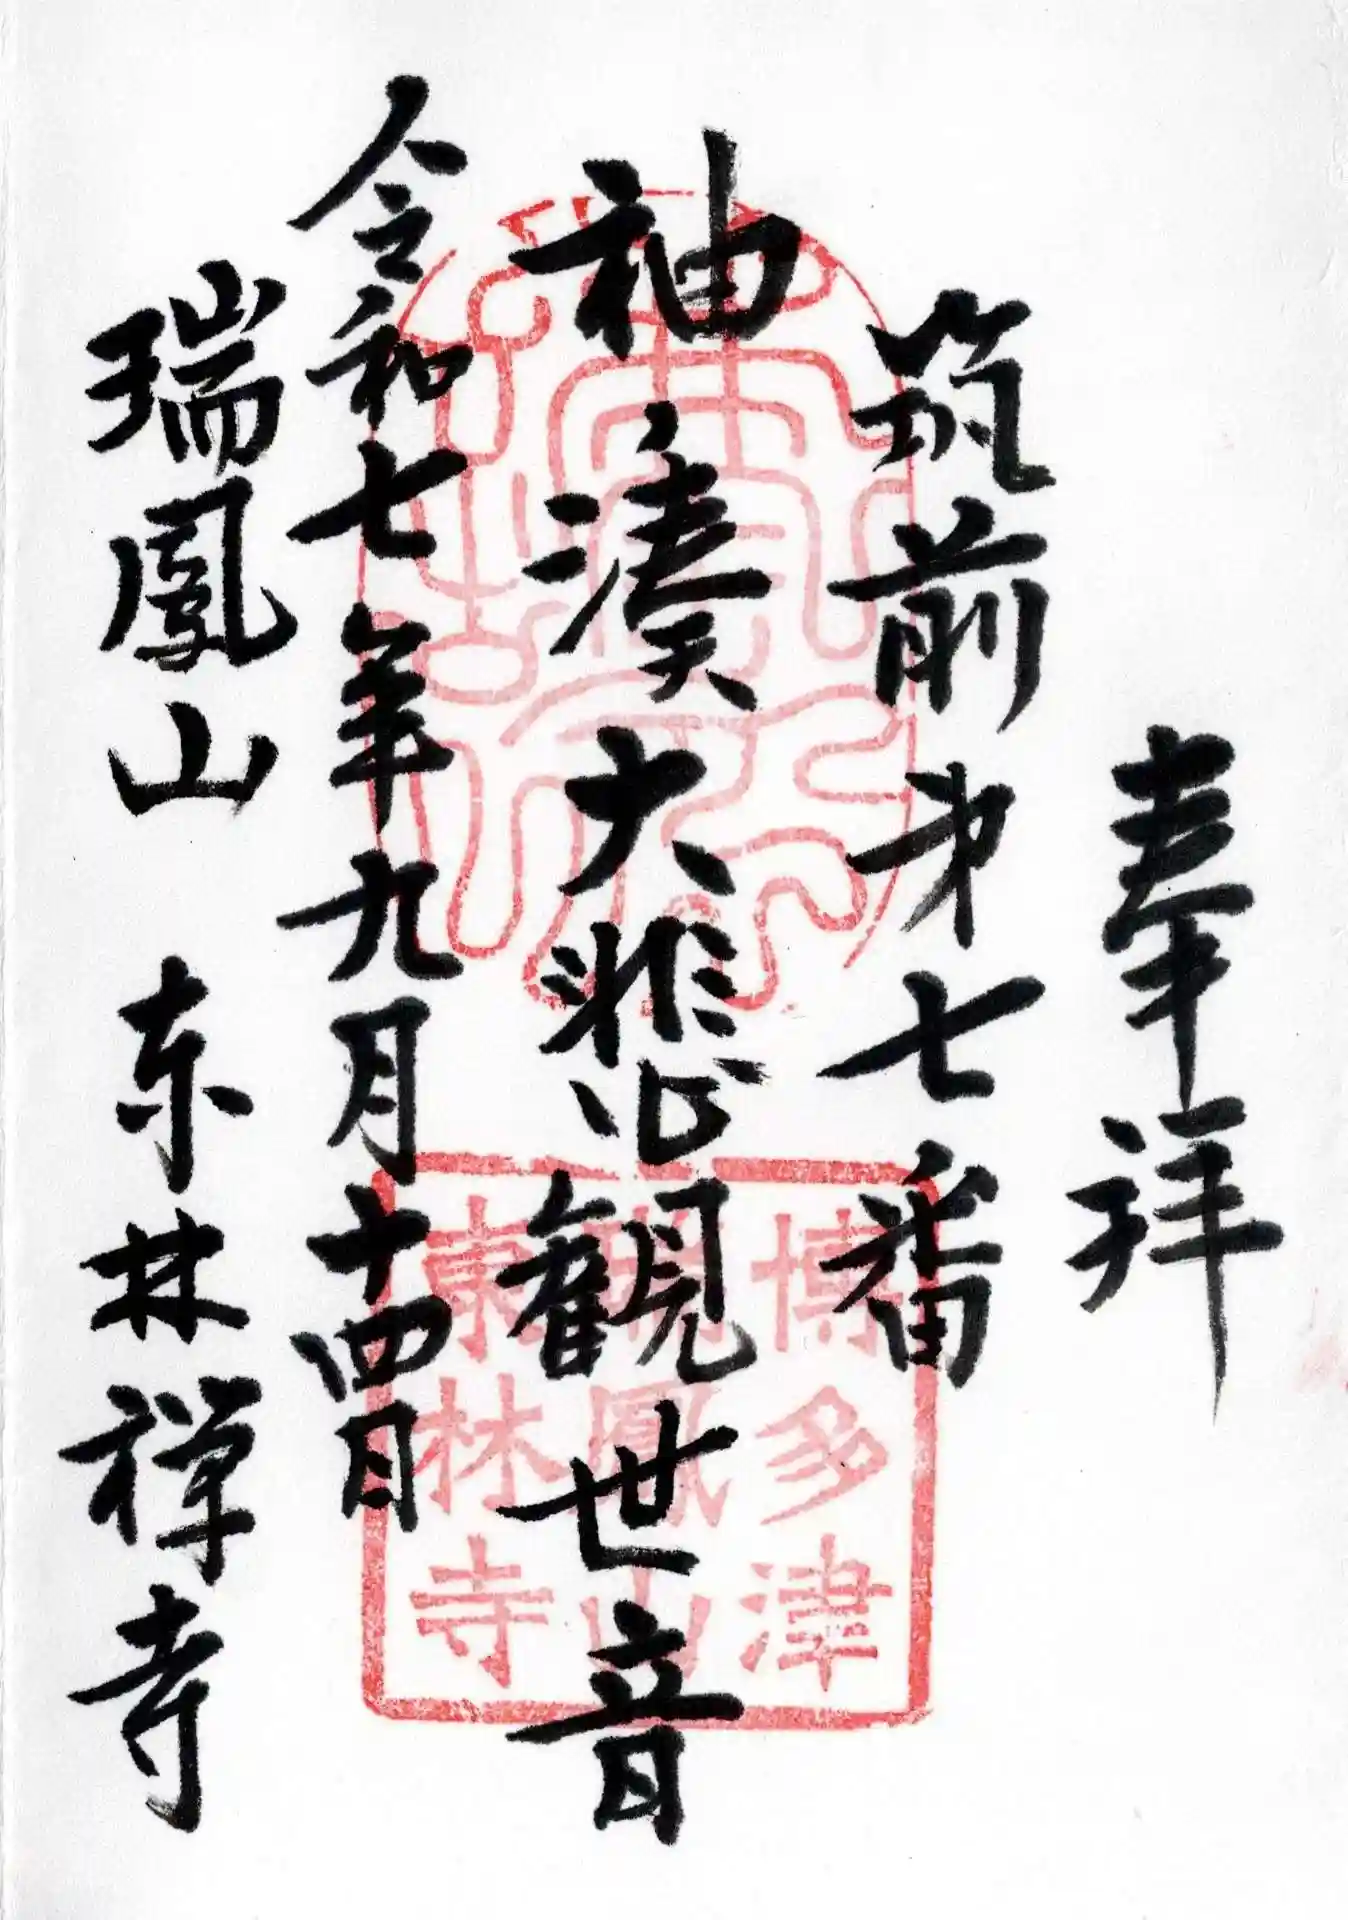 奉拝
筑前第七番
袖ノ湊大悲観世音
令和七年九月十四日
瑞鳳山 東林禅寺
博多津
瑞鳳山
東林寺